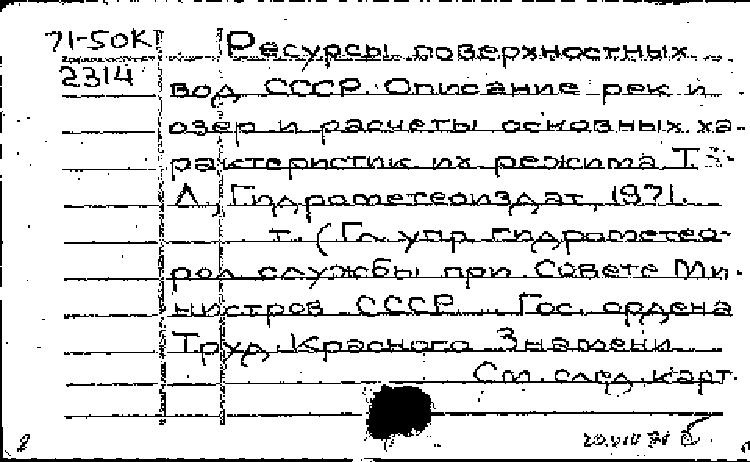 71-50К
2314
Ресурсы поверхностных
вод СССР. Описание рек и
озер и расчеты основных ха-
рактеристик их режима. Т.
Л., Гидрометеоиздат, 1971.
т. (Гл. упр. гидрометео-
рол. службы при Совете Ми-
нистров СССР. Гос. ордена
Труд. Красного Знамени
См. след. карт.